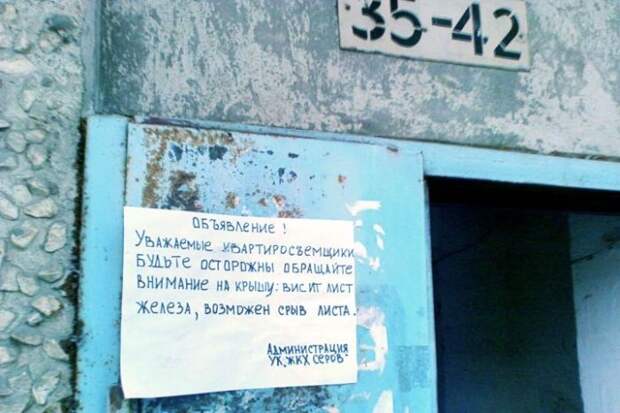 35-42
Объявление!
Уважаемые квартиросъемщики
будьте осторожны обращайте
внимание на крышу: висит лист
железа, возможен срыв листа.
Администрация
УК„ЖКХ Серов"